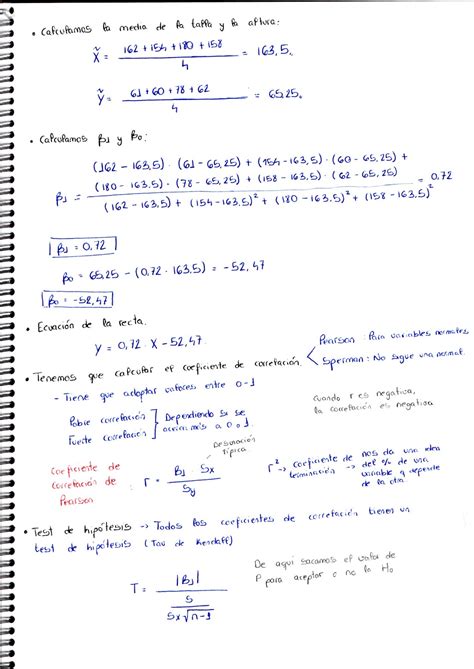 • Calculamos la media de la talla y la altura:
X̃ = (162 + 154 + 180 + 158) / 4 = 163,5.
Ỹ = (61 + 60 + 78 + 62) / 4 = 65,25.
• Calculamos β1 y β0:
(162 - 163,5) · (61 - 65,25) + (154 - 163,5) · (60 - 65,25) +
(180 - 163,5) · (78 - 65,25) + (158 - 163,5) · (62 - 65,25)
β1 = ――― = 0,72
(162 - 163,5)² + (154 - 163,5)² + (180 - 163,5)² + (158 - 163,5)²
β1 = 0,72
β0 = 65,25 - (0,72 · 163,5) = -52,47
β0 = -52,47
• Ecuación de la recta.
Y = 0,72 · X - 52,47.
• Tenemos que calcular el coeficiente de correlación.
Pearson: Para variables normales
Sperman: No sigue una normal.
- Tiene que adoptar valores entre 0-1
Pobre correlación
Fuerte correlación
] Dependiendo si se
acerca más a 0 o 1.
Cuando r es negativa,
la correlación es negativa
Coeficiente de
correlación de
Pearson
: r = (β1 · Sx) / Sy
Desviación
típica.
r² → Coeficiente de
terminación
→ nos da una idea
del % de una
variable q depende
de la otra
• Test de hipótesis → Todos los coeficientes de correlación tienen un
test de hipótesis (Tau de Kendall)
T = |β1| / (S / (Sx √n-1))
De aquí sacamos el valor de
P para aceptar o no la H0